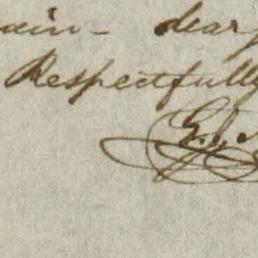 ain - dear
Respectfully
G.